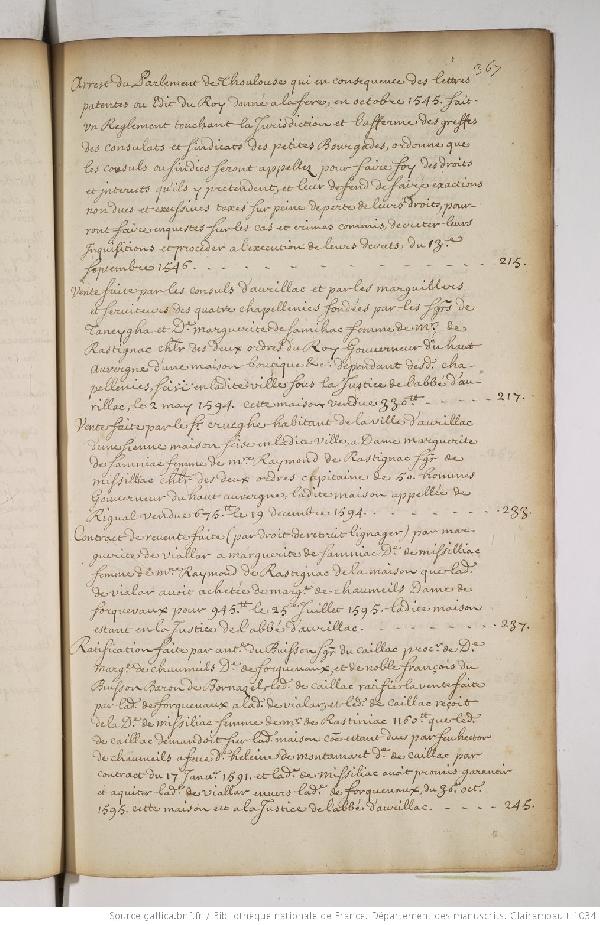 367
Arrest du Parlement de Thoulouse qui en consequence des lettres
patentes ou Edit du Roy donné a la fere, en octobre 1545. fait
un Reglement touchant la Jurisdiction et l'afferme des greffes
des consulats et sindicats des petites Bourgades, ordonne que
les consuls ou sindics seront appellez pour faire foy des droits
et intraits qu'ils y pretendent, et leur defend de faire exactions
non dues et excessives taxes sur peine de perte de leurs droits, pour-
ront faire enquestes sur les cas et crimes commis, decreter leurs
Inquisitions et proceder a l'execution de leurs decrets, du 13.e
septembre 1546. - - - - - - - - - 215.
Vente faite par les consuls d'aurillac et par les marguilliers
et serviteurs des quatre chapellenies fondées par les sgrs de
Taneygha et De. marguerite de Samilhac femme de mre. de
Rastignac chlr des deux ordres du Roy Gouverneur du haut
Auvergne d'une maison dependant desd. cha-
pellenies, scise en ladite ville sous la Justice de l'abbé d'au-
rillac, le 2 may 1594. cette maison vendue 336tt - - - - 217.
Vente faite par le sr. crueghe habitant de la ville d'aurillac
d'une sienne maison scise en ladite ville, a Dame marguerite
de Samniac femme de mre. Raymond de Rastignac sgr. de
missilliac chlr. des deux ordres capitaine de 50. hommes
Gouverneur du haut auvergne, ladite maison appellée de
Rigual vendue 675.tt le 19 decembre 1594. - - - - - 233.
Contract de revente faite (par droit de retrait lignager) par mar-
guerite de viallar a marguerite de Samniac De. de missilliac
femme de mre Raymond de Rastignac de la maison que lad.
de vialar avoit acheptée de marg.te de chaumeils Dame de
forquevaux pour 945.tt le 25.e Juillet 1595. ladite maison
estant en la Justice de l'abbé d'aurillac. - - - - - - 237.
Ratification faite par ant.e du Buisson sgr. du caillac procr. de De.
marg.te de chaumeils De. de forquevaux, et de noble françois du
Buisson Baron de Bornazel, led. de caillac ratifie la vente faite
par lad. de forquevaux a lad. de vialar, et led. de caillac reçoit
de la De. de missiliac femme de mr. de Rastiniac 1160.tt que led.
de caillac demandoit sur lad. maison cõe estant dus par feu hector
de chaumeils a feue d.e heleine de montamart de. de caillac par
contract du 17 Janv.r 1591. et lad. de missiliac avoit promis garantir
et aquiter lad. de viallar envers lad. de forquevaux, du 30.e oct.
1595. cette maison est a la Justice de l'abbé d'aurillac. - - - - 245.
Source gallica.bnf.fr / Bibliothèque nationale de France. Département des manuscrits. Clairambault 1034